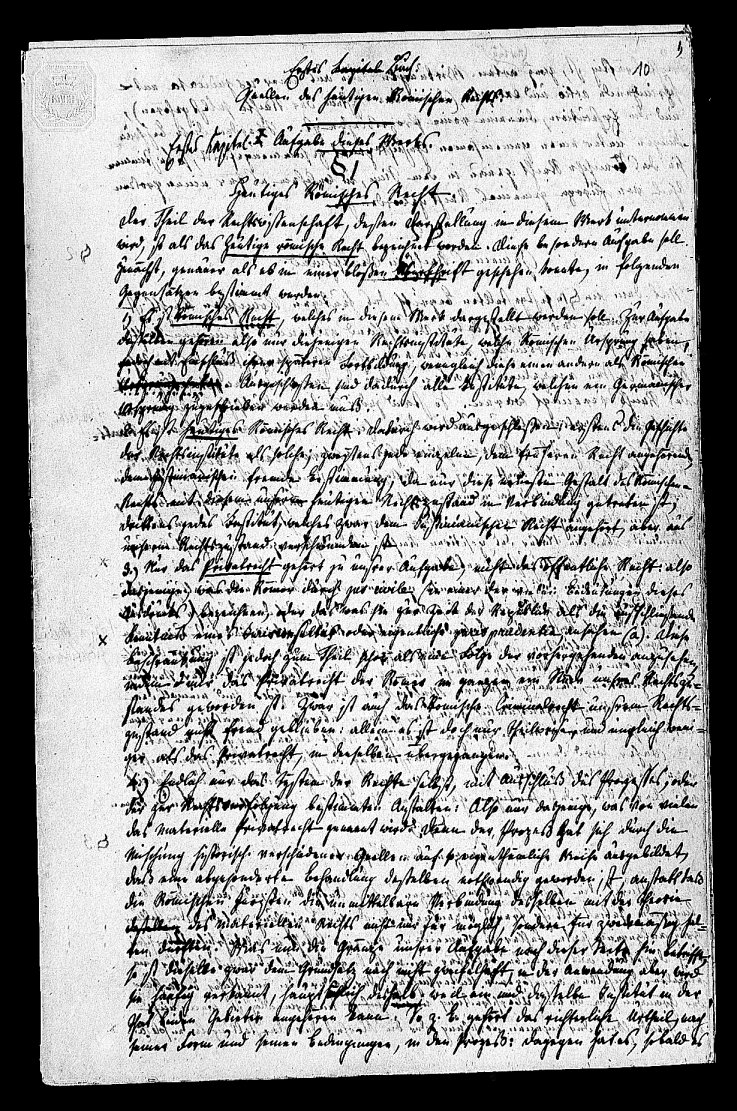 10
Erstes Kapitel Buch:
Quellen des heutigen Römischen Rechts.
Erstes Kapitel. Aufgabe dieses Werks.
§ 1
Heutiges Römisches Recht
Der Theil der Rechtswissenschaft, dessen Darstellung in diesem Werk unternommen
wird, ist als das heutige römische Recht bezeichnet worden. Diese besondere Aufgabe soll
zunächst, genauer als es in einer bloßen Überschrift geschehen konnte, in folgenden
Gegensätzen bestimmt werden.
1) Es ist Römisches Recht, welches in diesem Werk dargestellt werden soll. Zur Aufgabe
desselben gehören also nur diejenigen Rechtsinstitute, welche Römischen Ursprung haben,
jedoch mit Einschluß ihrer späteren Fortbildung, wenngleich diese einen andern als Römischen
Ausgeschlossen sind dadurch alle Institute, welchen ein Germanischer
Ursprung zugeschrieben werden muß.
2) Es ist heutiges Römisches Recht. Dadurch wird ausgeschlossen: erstens die Geschichte
der Rechtsinstitute als solche; zweitens jede einzelne, dem früheren Recht angehörende,
dem Justinianischen fremde Bestimmung, da nur diese neueste Gestalt des Römischen
Rechts mit unserm heutigen Rechtszustand in Verbindung getreten ist;
drittens jedes Institut, welches zwar dem Justinianischen Recht angehört, aber aus
unserm Rechtszustand verschwunden ist.
3) Nur das Privatrecht gehört zu unsrer Aufgabe, nicht das öffentliche Recht: also
dasjenige, was die Römer durch jus civile (in einer der vielen Bedeutungen dieses
Ausdrucks) bezeichnen, oder das was sie zur Zeit der Republik als die ausschließende
Kenntniß eines Jurisconsultus oder eigentliche juris prudentia ansahen (a). Diese
Beschränkung ist jedoch zum Theil schon als eine Folge der vorhergehenden anzusehen,
indem nur das Privatrecht der Römer im ganzen ein Stück unsres Rechtszu-
standes geworden ist. Zwar ist auch das Römische Criminalrecht unsrem Rechts-
zustand nicht fremd geblieben: allein es ist doch nur theilweise, und ungleich weni-
ger als das Privatrecht, in denselben übergegangen.
4) Endlich nur das System der Rechte selbst, mit Ausschluß des Prozesses, oder
der zur Rechtsverfolgung bestimmten Anstalten: Also nur dasjenige, was von vielen
das materielle Privatrecht genannt wird. Denn der Prozeß hat sich durch die
Mischung historisch verschiedener Quellen auf so eigenthümliche Weise ausgebildet,
daß eine abgesonderte Behandlung desselben nothwendig geworden ist, anstatt daß
die Römischen Juristen die unmittelbare Verbindung desselben mit der Theorie
des materiellen Rechts nicht nur für möglich, sondern für zweckmäßig hal-
ten durften. Was nun die Gränze unsrer Aufgabe nach dieser Seite hin betrifft,
so ist dieselbe zwar dem Grundsatz nach nicht zweifelhaft, in der Anwendung aber wird
sie häufig verkannt, hauptsächlich deshalb, weil ein und dasselbe Institut in der
That beiden Gebieten angehören kann. So z. B. gehört das richterliche Urtheil, nach
seiner Form und seinen Bedingungen, in den Prozeß: dagegen hat es, sobald es